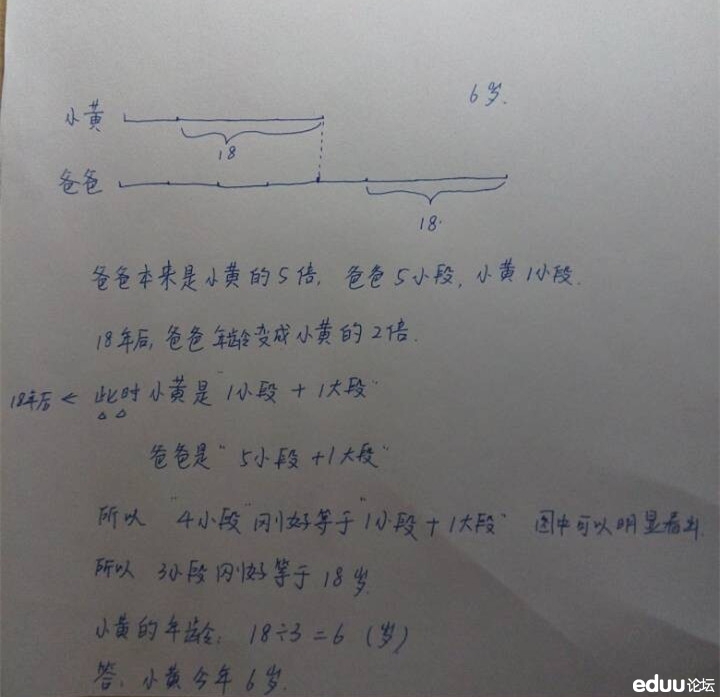 6岁.
小黄
18
爸爸
18.
爸爸本来是小黄的5倍, 爸爸5小段, 小黄1小段.
18年后, 爸爸年龄变成小黄的2倍.
18年后 ← 此时小黄是"1小段 + 1大段"
爸爸是"5小段 + 1大段"
所以 "4小段"刚好等于"1小段 + 1大段" 图中可以明显看出.
所以 3小段刚好等于18岁.
小黄的年龄: 18÷3=6 (岁)
答: 小黄今年6岁.
eduu论坛